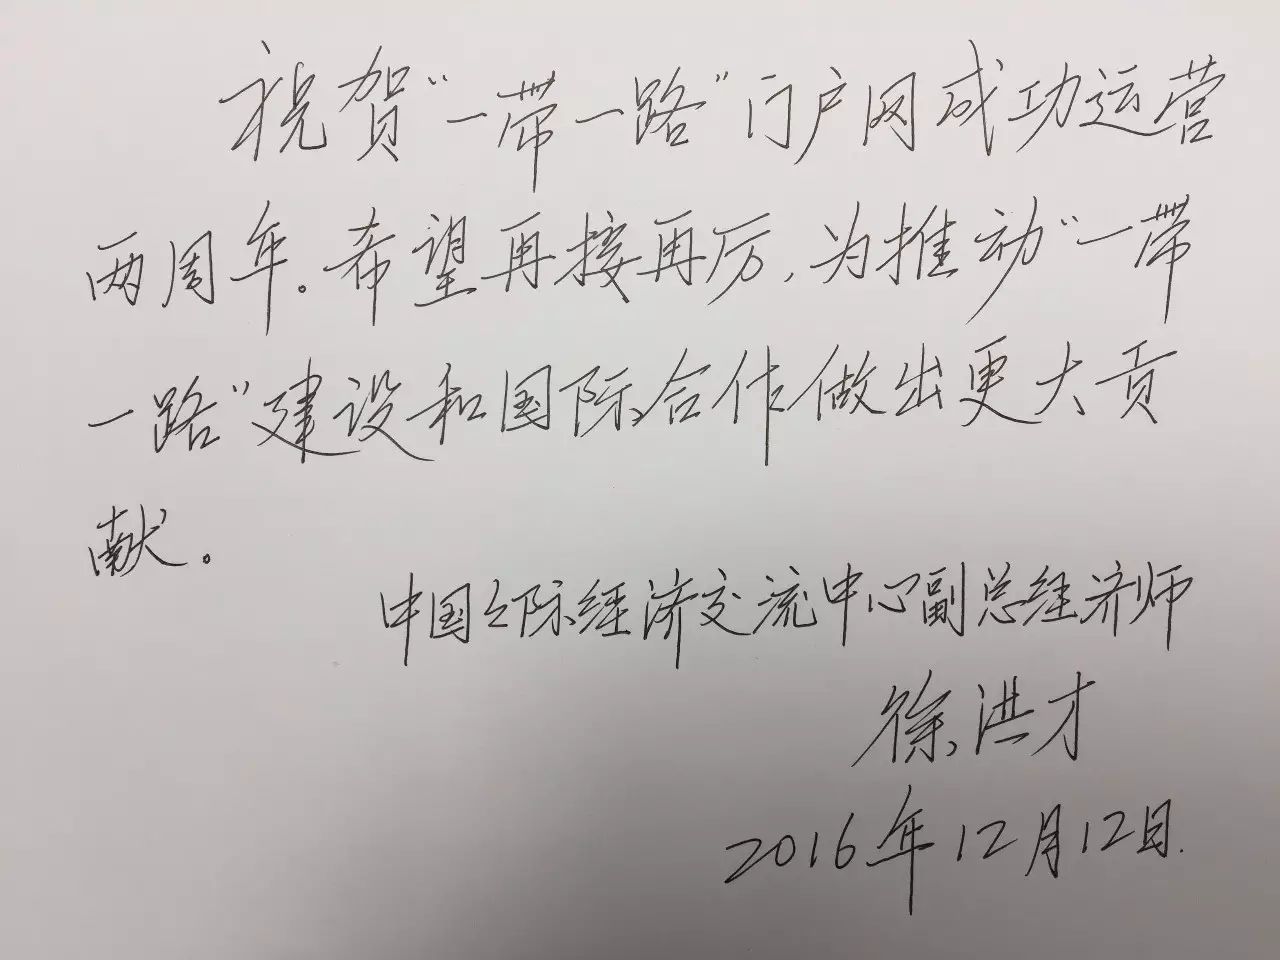 祝贺“一带一路”门户网成功运营
两周年。希望再接再厉，为推动“一带
一路”建设和国际合作做出更大贡
献。
中国国际经济交流中心副总经济师
徐洪才
2016年12月12日.